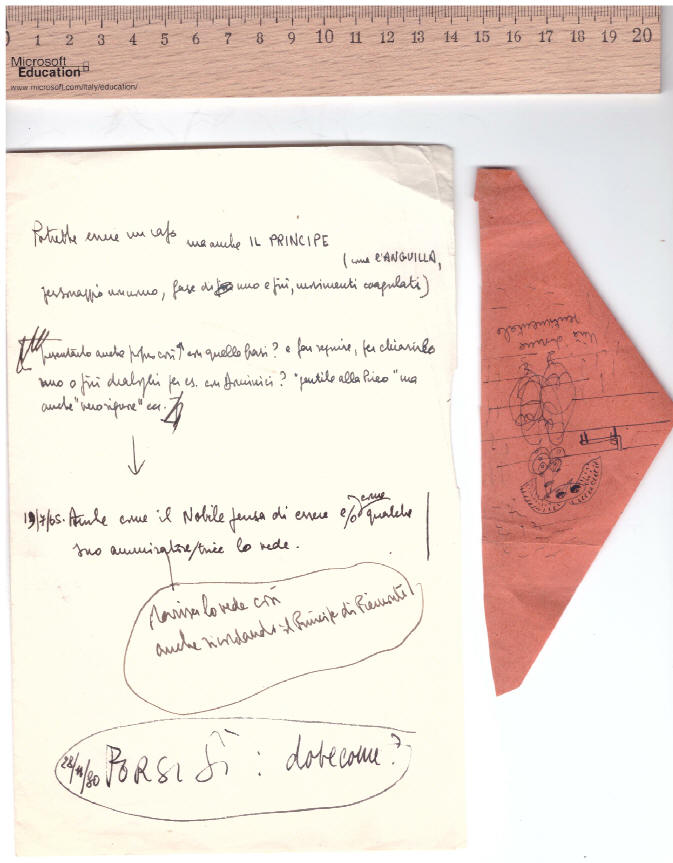 0 1 2 3 4 5 6 7 8 9 10 11 12 13 14 15 16 17 18 19 20
Microsoft
Education
www.microsoft.com/italy/education/
Potrebbe essere un ma anche IL PRINCIPE
(come L'ANGUILLA,
personaggio fase di uno e più, movimenti coagulati)
anche proprio così con quelle frasi? e far seguire, per chiarirlo
uno o più dialoghi per es. con "gentile alla Pico" ma
anche "vero signore" ecc.
19/7/65. Anche come il Nobile pensa di essere e/o come qualche
suo ammiratore/trice lo vede.
lo vede così
anche ricordando il Principe di Piemonte
28/11/80 FORSE SÌ: dove come?
Una donna
sentimentale